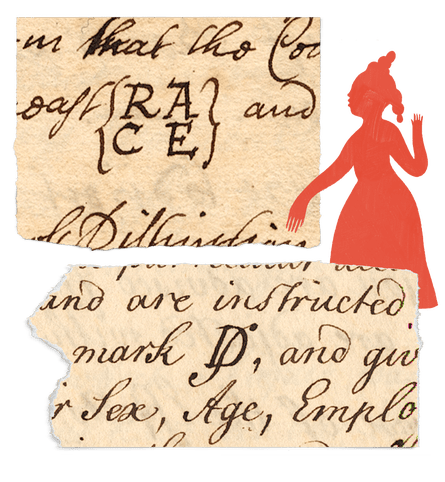 m that the Co
east {RA} and
{C E}
Distinction
and are instructed
mark D, and giv
r Sex, Age, Emplo